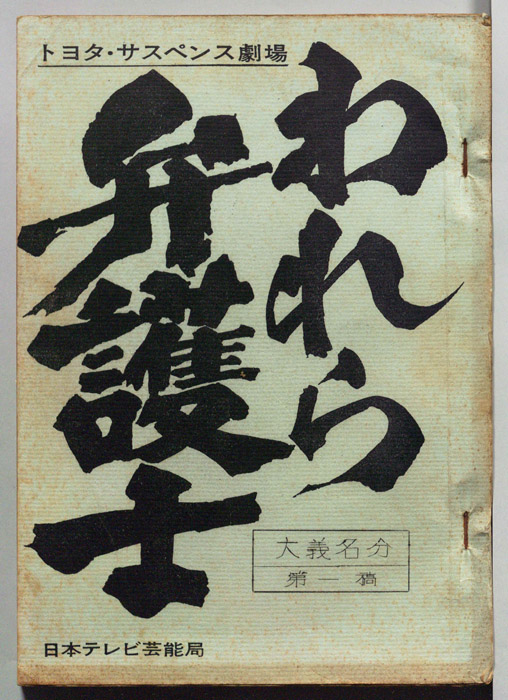 トヨタ・サスペンス劇場
われら
弁護士
大義名分
第一稿
日本テレビ芸能局